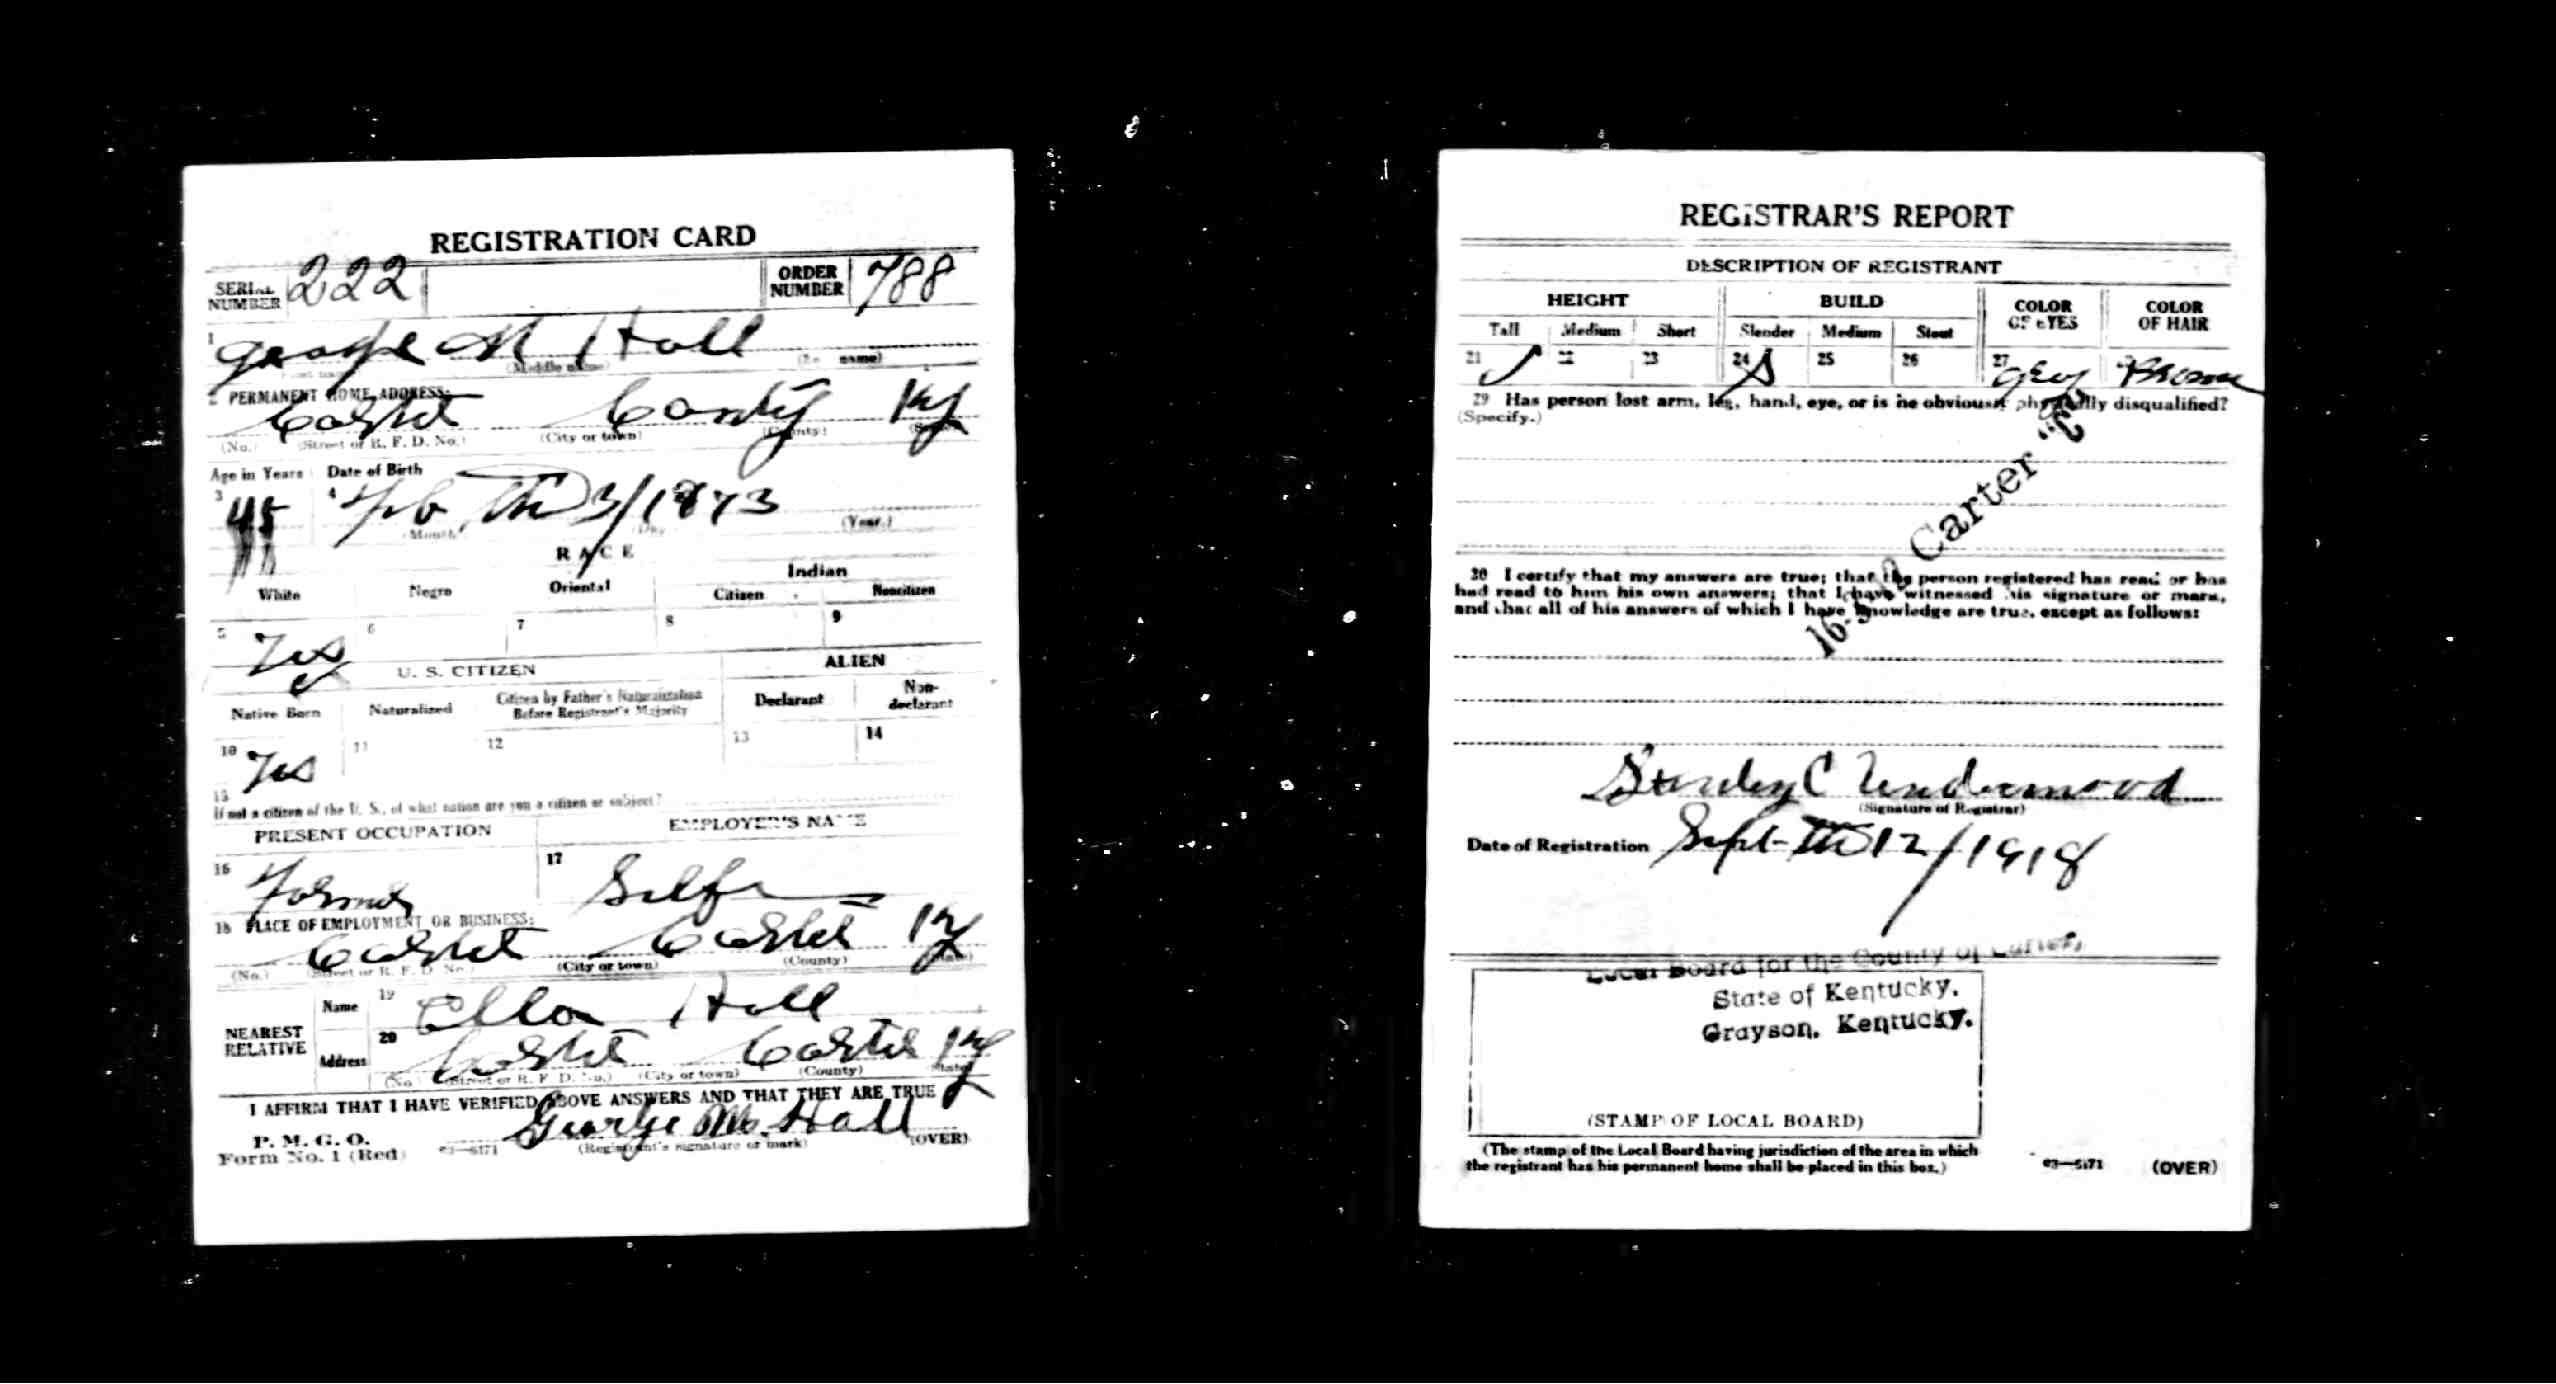 REGISTRATION CARD
SERIAL NUMBER 222 ORDER NUMBER 788
1 George M Hall
(Middle name) name)
2 PERMANENT HOME ADDRESS:
Carter Ky
(No.) (Street or R. F. D. No.) (City or town) (County)
Age in Years Date of Birth
3 45 4 Feb Th 3/1873
(Month) (Day) (Year.)
RACE
White Negro Oriental Indian
Citizen Noncitizen
5 Yes 6 7 8 9
U. S. CITIZEN ALIEN
Native Born Naturalized Citizen by Father's Naturalization Before Registrant's Majority Declarant Non-declarant
10 Yes 11 12 13 14
15
If not a citizen of the U. S., of what nation are you a citizen or subject?
PRESENT OCCUPATION EMPLOYER'S NAME
16 Farmer 17 Self
18 PLACE OF EMPLOYMENT OR BUSINESS:
Carter Carter Ky
(No.) (Street or R. F. D. No.) (City or town) (County) (State)
NEAREST RELATIVE
Name 19 Hall
Address 20 Carter Carter Ky
(No.) (Street or R. F. D. No.) (City or town) (County) (State)
I AFFIRM THAT I HAVE VERIFIED ABOVE ANSWERS AND THAT THEY ARE TRUE
P. M. G. O.
Form No. 1 (Red) 03—6171 George M. Hall (OVER)
(Registrant's signature or mark)
REGISTRAR'S REPORT
DESCRIPTION OF REGISTRANT
HEIGHT BUILD COLOR OF EYES COLOR OF HAIR
Tall Medium Short Slender Medium Stout
21 22 23 24 25 26 27 Grey Brown
29 Has person lost arm, leg, hand, eye, or is he obviously physically disqualified?
(Specify.)
Carter
30 I certify that my answers are true; that the person registered has read or has
had read to him his own answers; that I have witnessed his signature or mark,
and that all of his answers of which I have knowledge are true, except as follows:
Stanley C Underwood
(Signature of Registrar)
Date of Registration Sept- Th 12/1918
Local Board for the County of Carter,
State of Kentucky.
Grayson, Kentucky.
(STAMP OF LOCAL BOARD)
(The stamp of the Local Board having jurisdiction of the area in which
the registrant has his permanent home shall be placed in this box.)
03—6171 (OVER)